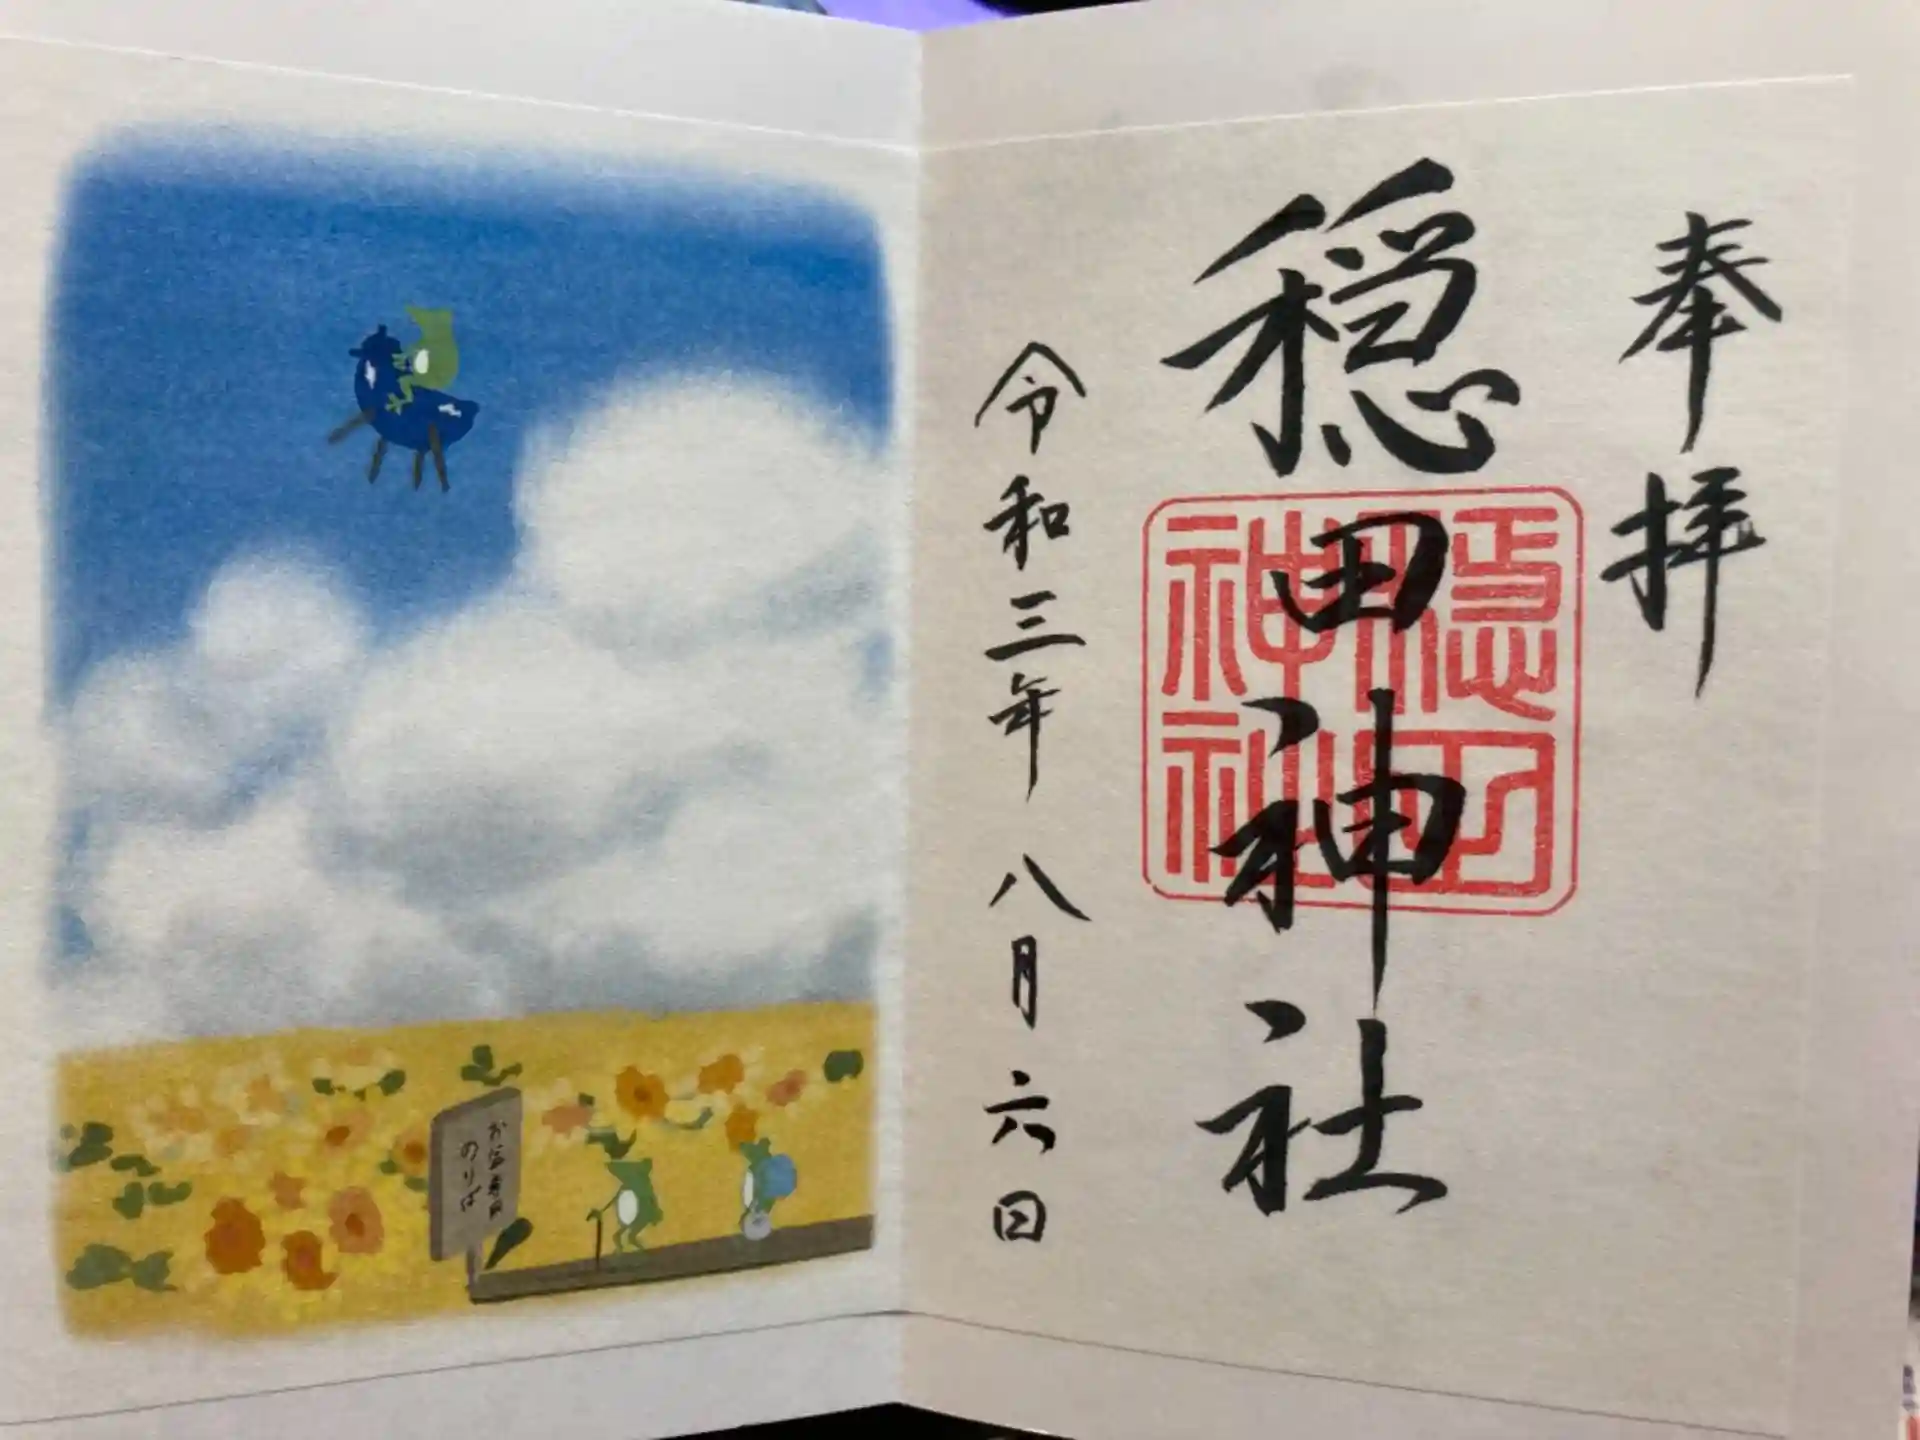 奉拝
穏田神社
穏田
神社
令和三年 八月六日
お盆専用
のりば